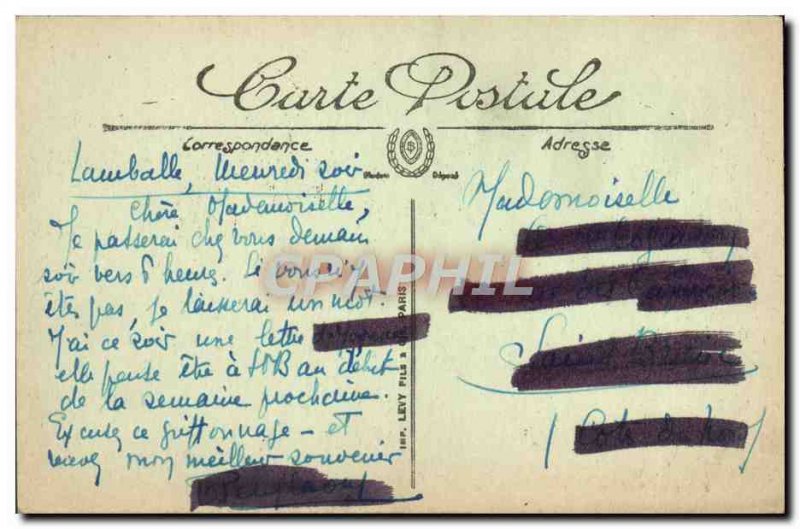 Carte Postale
Correspondance
Adresse
Modèle Déposé
Lamballe, Mercredi soir
Chère Mademoiselle,
Je passerai chez vous demain
soir vers 6 heures. Si vous n'y
êtes pas, je laisserai un mot.
J'ai ce soir une lettre
elle pense être à St B au début
de la semaine prochaine.
Excusez ce griffonnage - et
recevez mon meilleur souvenir
IMP. LEVY FILS & CIE PARIS
Mademoiselle
Saint Brieuc
Côtes du Nord
CPAPHIL